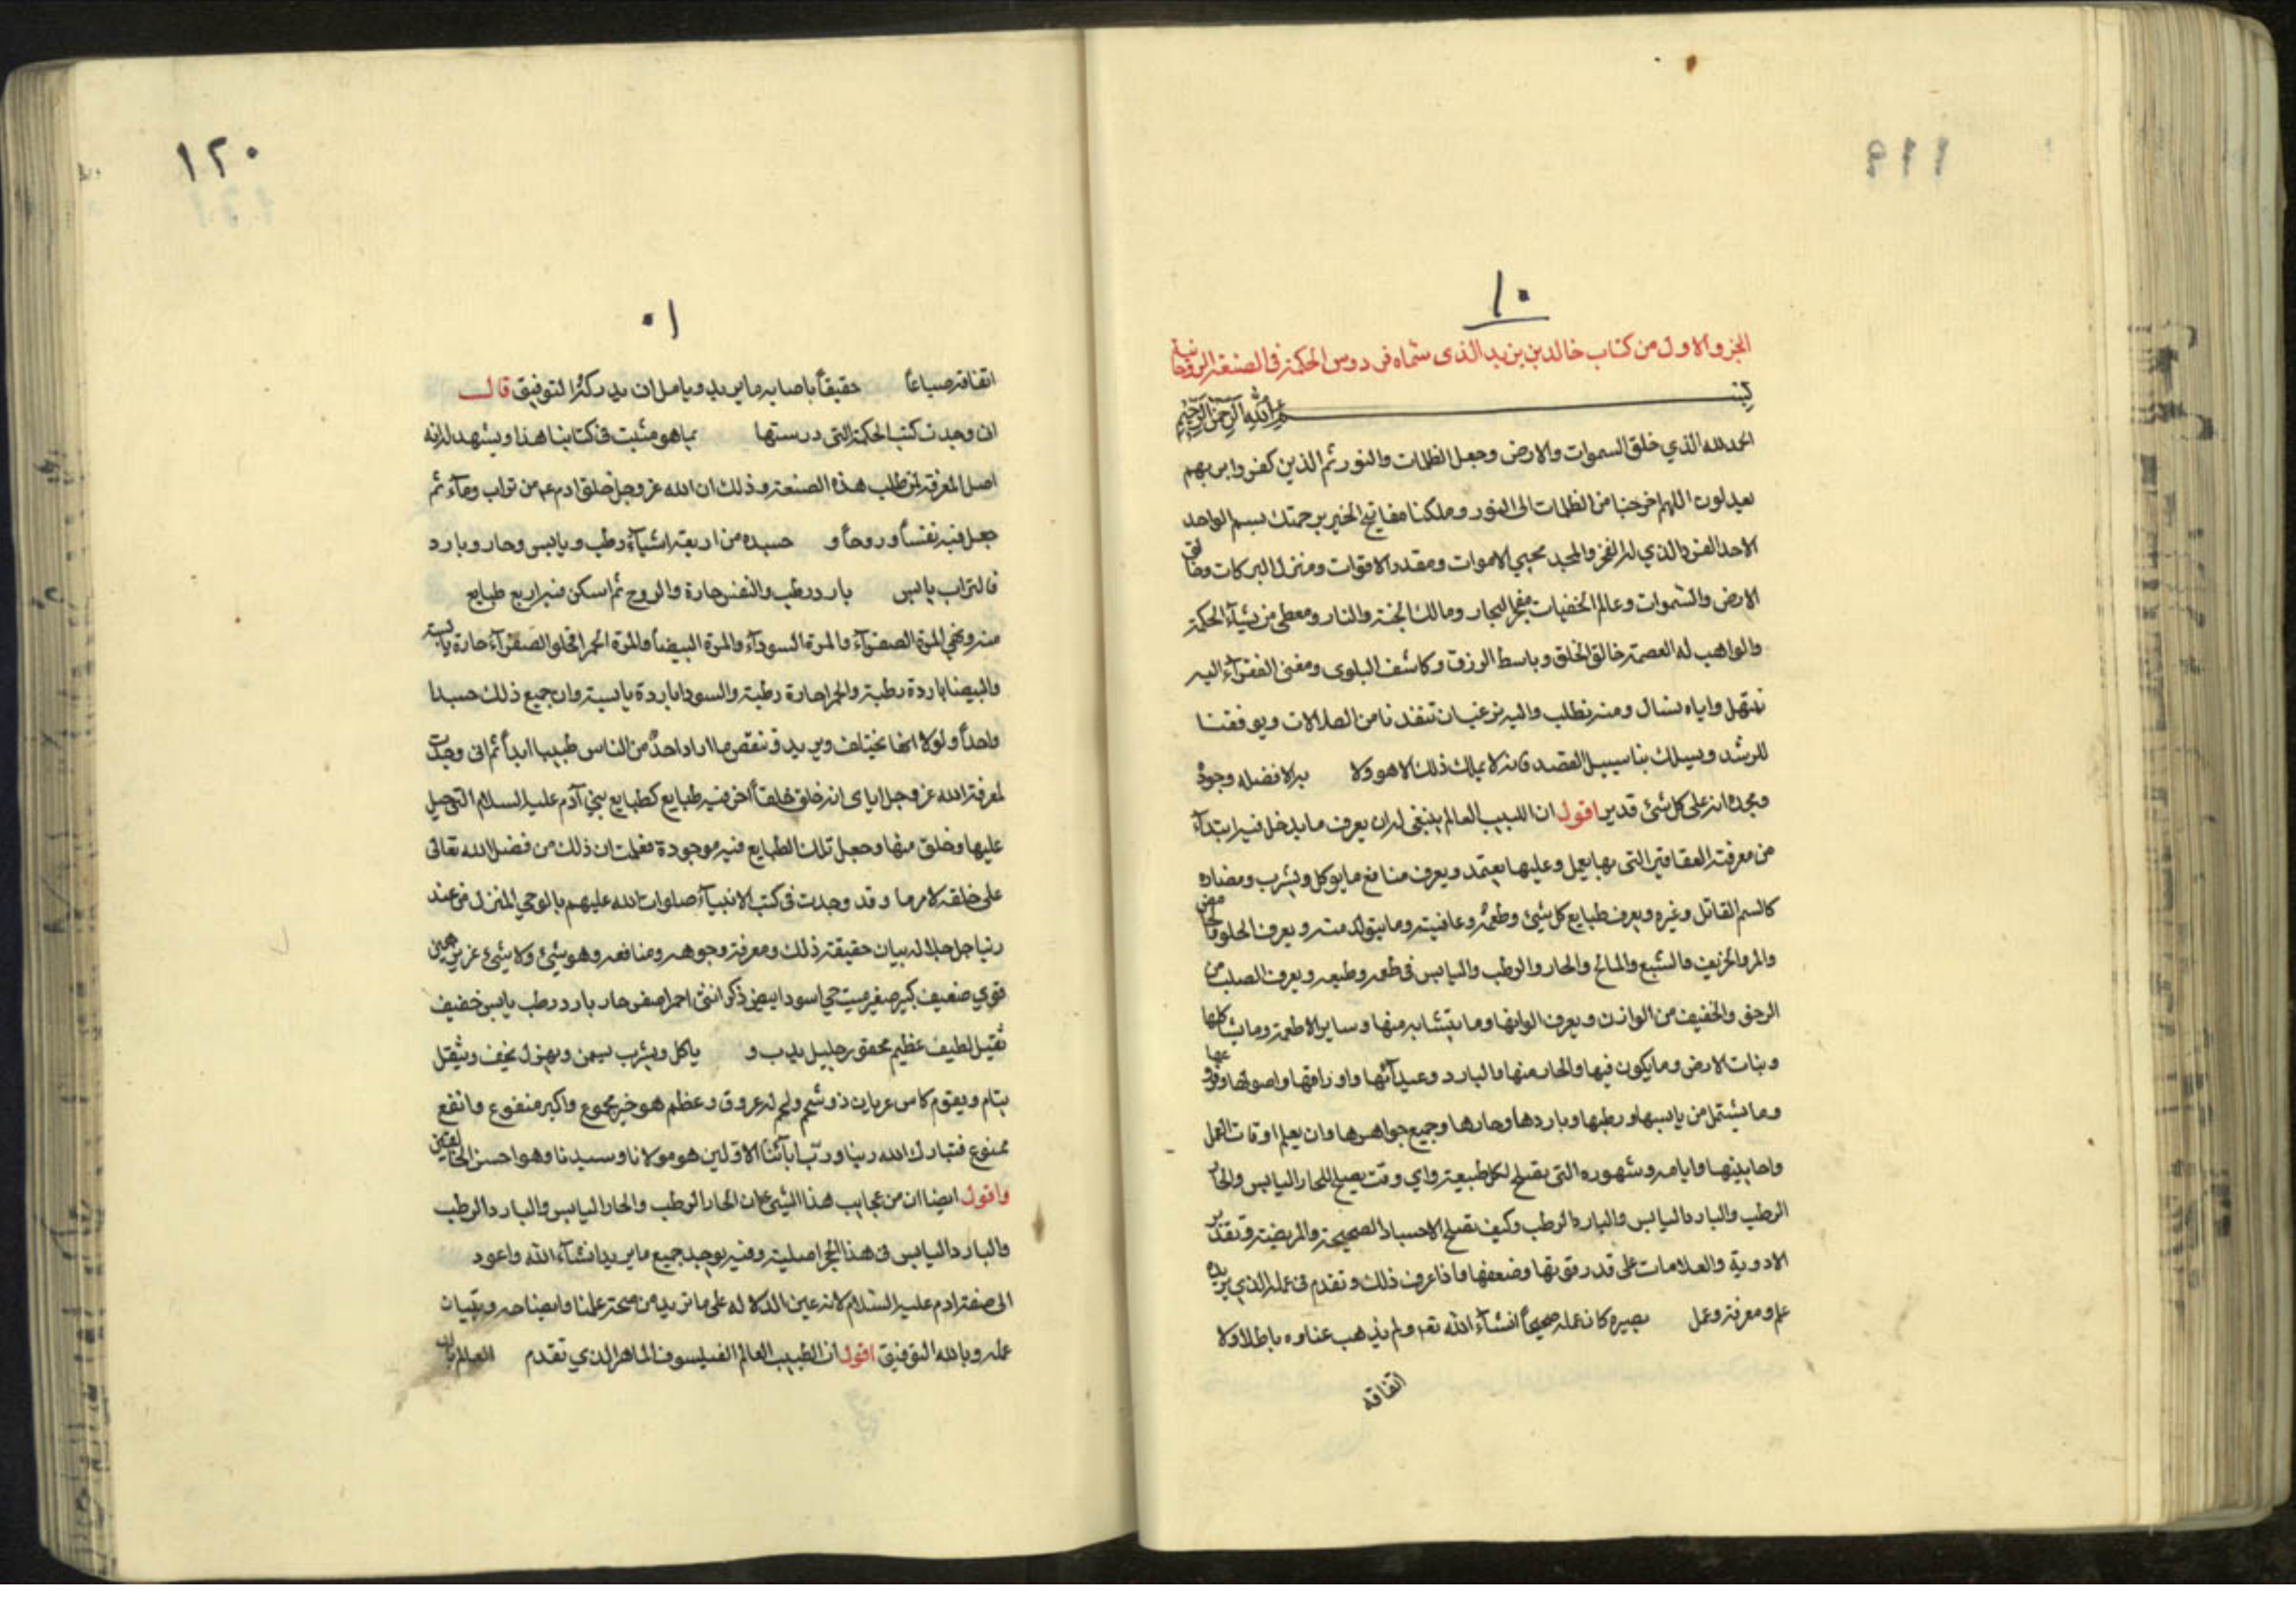 ١٠
الجزو الاول من كتاب خالد بن يزيد الذى سماه فردوس الحكمة فى الصنعة الروحانية
بسم الله الرحمن الرحيم
الحمد لله الذي خلق السموات والارض وجعل الظلمات والنور ثم الذين كفروا بربهم
يعدلون اللهم اخرجنا من الظلمات الى النور وملكنا مفاتيح الخير برحمتك بسم الواحد
الاحد الفرد الذي له الفخر والمجد محيي الاموات ومقدر الاقوات ومنزل البركات وخالق
الارض والسموات وعالم الخفيات مفجر البحار ومالك الجنة والنار ومعطى من يشآء الحكمة
والواهب له العصمة خالق الخلق وباسط الرزق وكاشف البلوى ومغنى الفقرآء اليه
نبتهل واياه نسال ومنه نطلب واليه نرغب ان تنقذنا من الضلالات ويوفقنا
للرشد ويسلك بنا سبيل القصد فانه لا يملك ذلك الا هو ولا به الا فضله وجوده
ومجده انه على كل شئ قدير اقول ان اللبيب العالم ينبغى له ان يعرف ما يدخل فيه ابتدآء
من معرفة العقاقير التى بها يعمل وعليها يعتمد ويعرف منافع ما يوكل ويشرب ومضاره
كالسم القاتل وغيره ويعرف طبايع كل شئ وطعمه وعافيته وما يتولد منه ويعرف الحلو والحامض
والمر والحريف والشبع والمالح والحار والرطب واليابس فى طعمه وطبعه ويعرف الصلب من
الرخو والخفيف من الوازن ويعرف الوانها وما يتشابه منها وساير الاطعمة وما يشاكلها
ونبات الارض وما يكون فيها والحار منها والبارد وعيدآنها واوراقها واصولها وفروعها
وما يشتمل من يابسها ورطبها وباردها وحارها وجميع جواهرها وان يعلم اوقات العمل
واحايينها وايامه وشهوره التى تصلح لكل طبيعة واي وقت يصلح للحار اليابس والحار
الرطب والبارد اليابس والبارد الرطب وكيف تصلح الاجساد الصحيحة والمريضة وتقدير
الادوية والعلامات على قدر قوتها وضعفها فاذا عرف ذلك وتقدم فى عمله الذي يريده
علم ومعرفة وعمل بصيره كان عمله صحيحاً انشآء الله تعم ولم يذهب عناوه باطلا ولا
اتفاقه
١٢٠
١٠
اتفاقه ضياعاً حقيقاً باصابه ما يريد ويامل ان يدركه التوفيق قال
ان وجدت كتب الحكمة التى درستها بما هو مثبت فى كتابنا هذا ويشهد له انه
اصل المعرفة لمن طلب هذه الصنعة وذلك ان الله عز وجل خلق ادم عم من تراب ومآء ثم
جعل فيه نفساً وروحاً و جسده من اربعة اشيآء رطب ويابس وحار وبارد
فالتراب يابس بارد رطب والنفس حارة والروح ثم اسكن فيه اربع طبايع
منه وهي المرة الصفرآء والمرة السودآء والمرة البيضا والمرة الحمرا فخلق الصفرآء حارة يابسة
والبيضا باردة رطبة والحمرا حارة رطبة والسودا باردة يابسة وان جميع ذلك جسدا
واحداً ولولا انها تختلف ويريد وتنقص ما اراد احدٌ من الناس طبيبا ابداً ثم انى وجدت
لمعرفة الله عز وجل اياى انه خلق خلقاً اخر فيه طبايع كطبايع بني آدم عليه السلام التى جبل
عليها وخلق منها وجعل تلك الطبايع فيه موجودة فعلمت ان ذلك من فضل الله تعالى
على خلقه لامر ما وقد وجدت فى كتب الانبيآء صلوات الله عليهم بالوحي المنزل من عند
ربنا جل جلاله بيان حقيقة ذلك ومعرفة وجوهه ومنافعه وهو شئ ولا شئ عزيز هين
قوي ضعيف كبير صغير ميت حي اسود ابيض ذكر انثى احمر اصفر حار بارد رطب يابس خفيف
ثقيل لطيف عظيم محقور جليل يدب و ياكل ويشرب يسمن ويهزل يخف ويثقل
ينام ويقوم كاس عريان ذو شحم ولحم له عروق وعظم هو خير مجموع واكبر منفوع وانفع
ممنوع فتبارك الله ربنا وربّ آبآئنا الاولين هو مولانا وسيدنا وهو احسن الخالقين
واقول ايضا ان من عجايب هذا الشئ ان الحار الرطب والحار اليابس والبارد الرطب
والبارد اليابس فى هذا الحجر اصلية وفيه يوجد جميع ما يريد انشآء الله واعود
الى صفة ادم عليه السلام لانه عين الدلاله على ما نريد من صحة علمنا وايضاحه وتبيان
عمله وبالله التوفيق اقول ان الطبيب العالم الفيلسوف الماهر الذي تقدم العالم بان